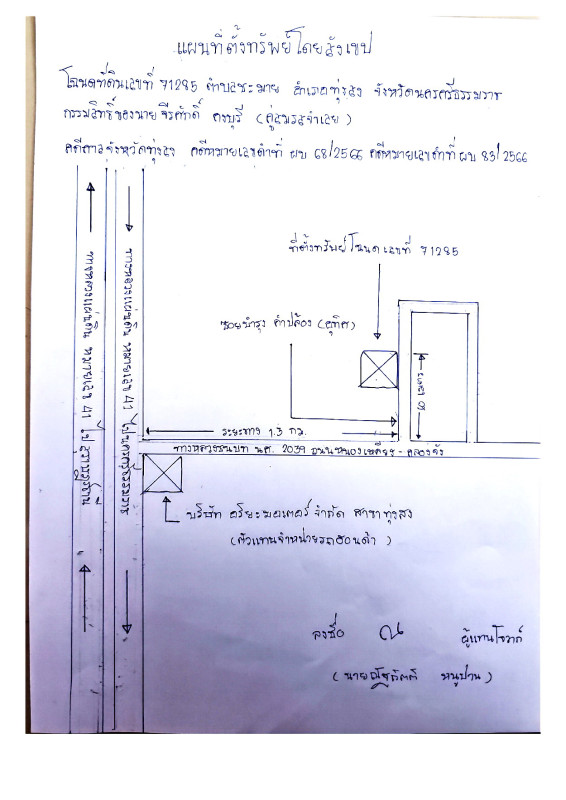 แผนที่ตั้งทรัพย์โดยสังเขป
โฉนดที่ดินเลขที่ 71285 ตำบลชะมาย อำเภอทุ่งสง จังหวัดนครศรีธรรมราช
กรรมสิทธิ์ของนายจีรศักดิ์ คงบุรี (คู่สมรสจำเลย)
คดีศาลจังหวัดทุ่งสง คดีหมายเลขดำที่ ผบ 68/2566 คดีหมายเลขดำที่ ผบ 83/2566
ที่ตั้งทรัพย์โฉนดเลขที่ 71285
ซอยบำรุง คำปล้อง (อุทิศ)
ระยะทาง 1.3 กม.
ทางหลวงชนบท นศ. 2039 ถนนหนองเหรียง - คลองจัง
ทางหลวงแผ่นดิน หมายเลข 41 ไปสุราษฎร์ธานี
ทางหลวงแผ่นดิน หมายเลข 41 ไปนครศรีธรรมราช
บริษัท อริยะมอเตอร์ จำกัด สาขาทุ่งสง
(ตัวแทนจำหน่ายรถฮอนด้า)
ลงชื่อ ผู้แทนโจทก์
(นายณัฐกิตติ์ หนูปาน)